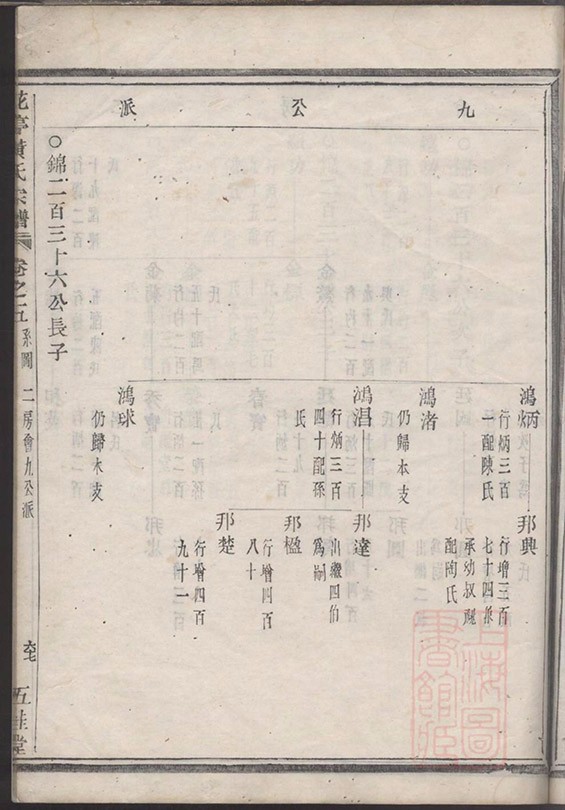 九公派
鴻炳
行炳三百
配陳氏
邦興
行增三百
七十四兼
承幼叔祧
配陶氏
鴻渚
仍歸本支
鴻昌
行炳三百
四十配孫
氏
邦達
出繼四伯
為嗣
邦楹
行增四百
八十
邦楚
行增四百
九十一
鴻球
仍歸本支
○錦二百三十六公長子
花亭黃氏宗譜 卷之五 系圖 二房會九公派 五桂堂
上海圖
書館藏